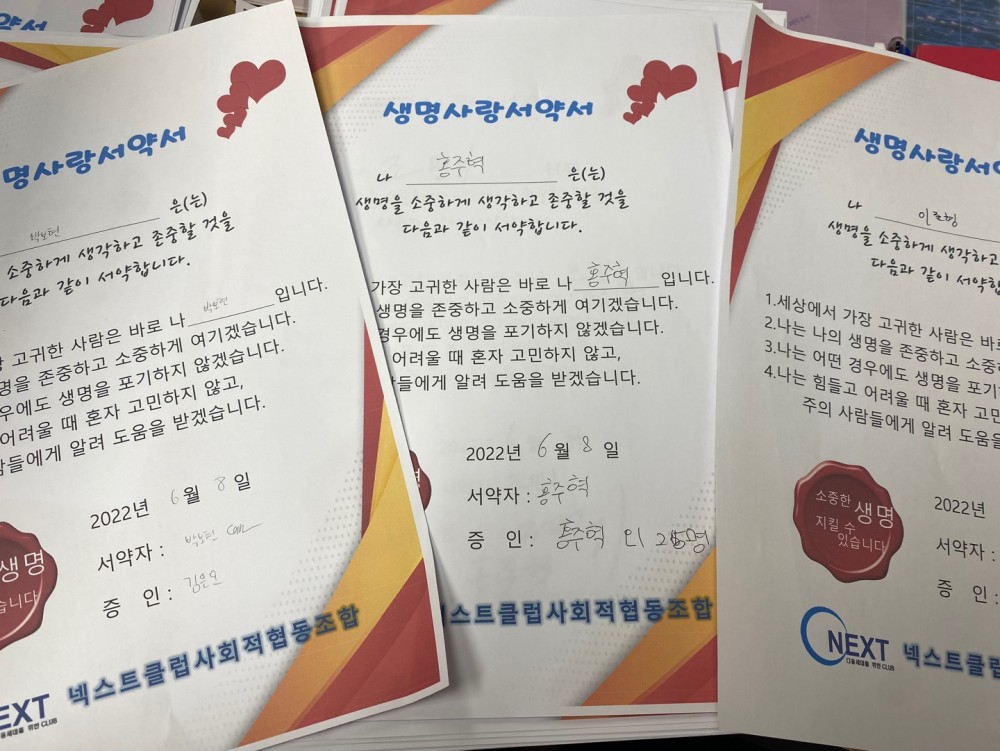 약서
명사랑서약서
은(는)
소중하게 생각하고 존중할 것을
다음과 같이 서약합니다.
고귀한 사람은 바로 나 입니다.
명을 존중하고 소중하게 여기겠습니다.
우에도 생명을 포기하지 않겠습니다.
어려울 때 혼자 고민하지 않고,
람들에게 알려 도움을 받겠습니다.
2022년 6월 8일
서약자 :
증 인 : 김은오
생명
습니다
EXT
다음세대를 위한 CLUB
넥스트클럽사회적협동조합
생명사랑서약서
나 홍주혁 은(는)
생명을 소중하게 생각하고 존중할 것을
다음과 같이 서약합니다.
가장 고귀한 사람은 바로 나 홍주혁 입니다.
생명을 존중하고 소중하게 여기겠습니다.
경우에도 생명을 포기하지 않겠습니다.
어려울 때 혼자 고민하지 않고,
람들에게 알려 도움을 받겠습니다.
2022년 6월 8일
서약자 : 홍주혁
증 인 : 홍주혁 의
넥스트클럽사회적협동조합
생명사랑서약
나
생명을 소중하게 생각하고
다음과 같이 서약합
1.세상에서 가장 고귀한 사람은 바로
2.나는 나의 생명을 존중하고 소중
3.나는 어떤 경우에도 생명을 포기
4.나는 힘들고 어려울 때 혼자 고민
주의 사람들에게 알려 도움을
소중한 생명
지킬 수
있습니다
2022년
서약자 :
증 인 :
NEXT
다음세대를 위한 CLUB
넥스트클럽